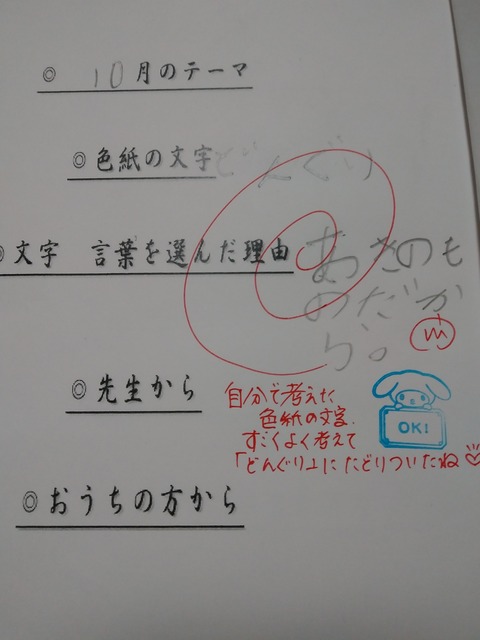 ◎ 10月のテーマ
◎ 色紙の文字 どんぐり
◎文字 言葉を選んだ理由 あきのも
のだか
ら。
◎ 先生から
自分で考えた
色紙の文字.
すごくよく考えて
「どんぐり」にたどりついたね♡
OK!
◎ おうちの方から